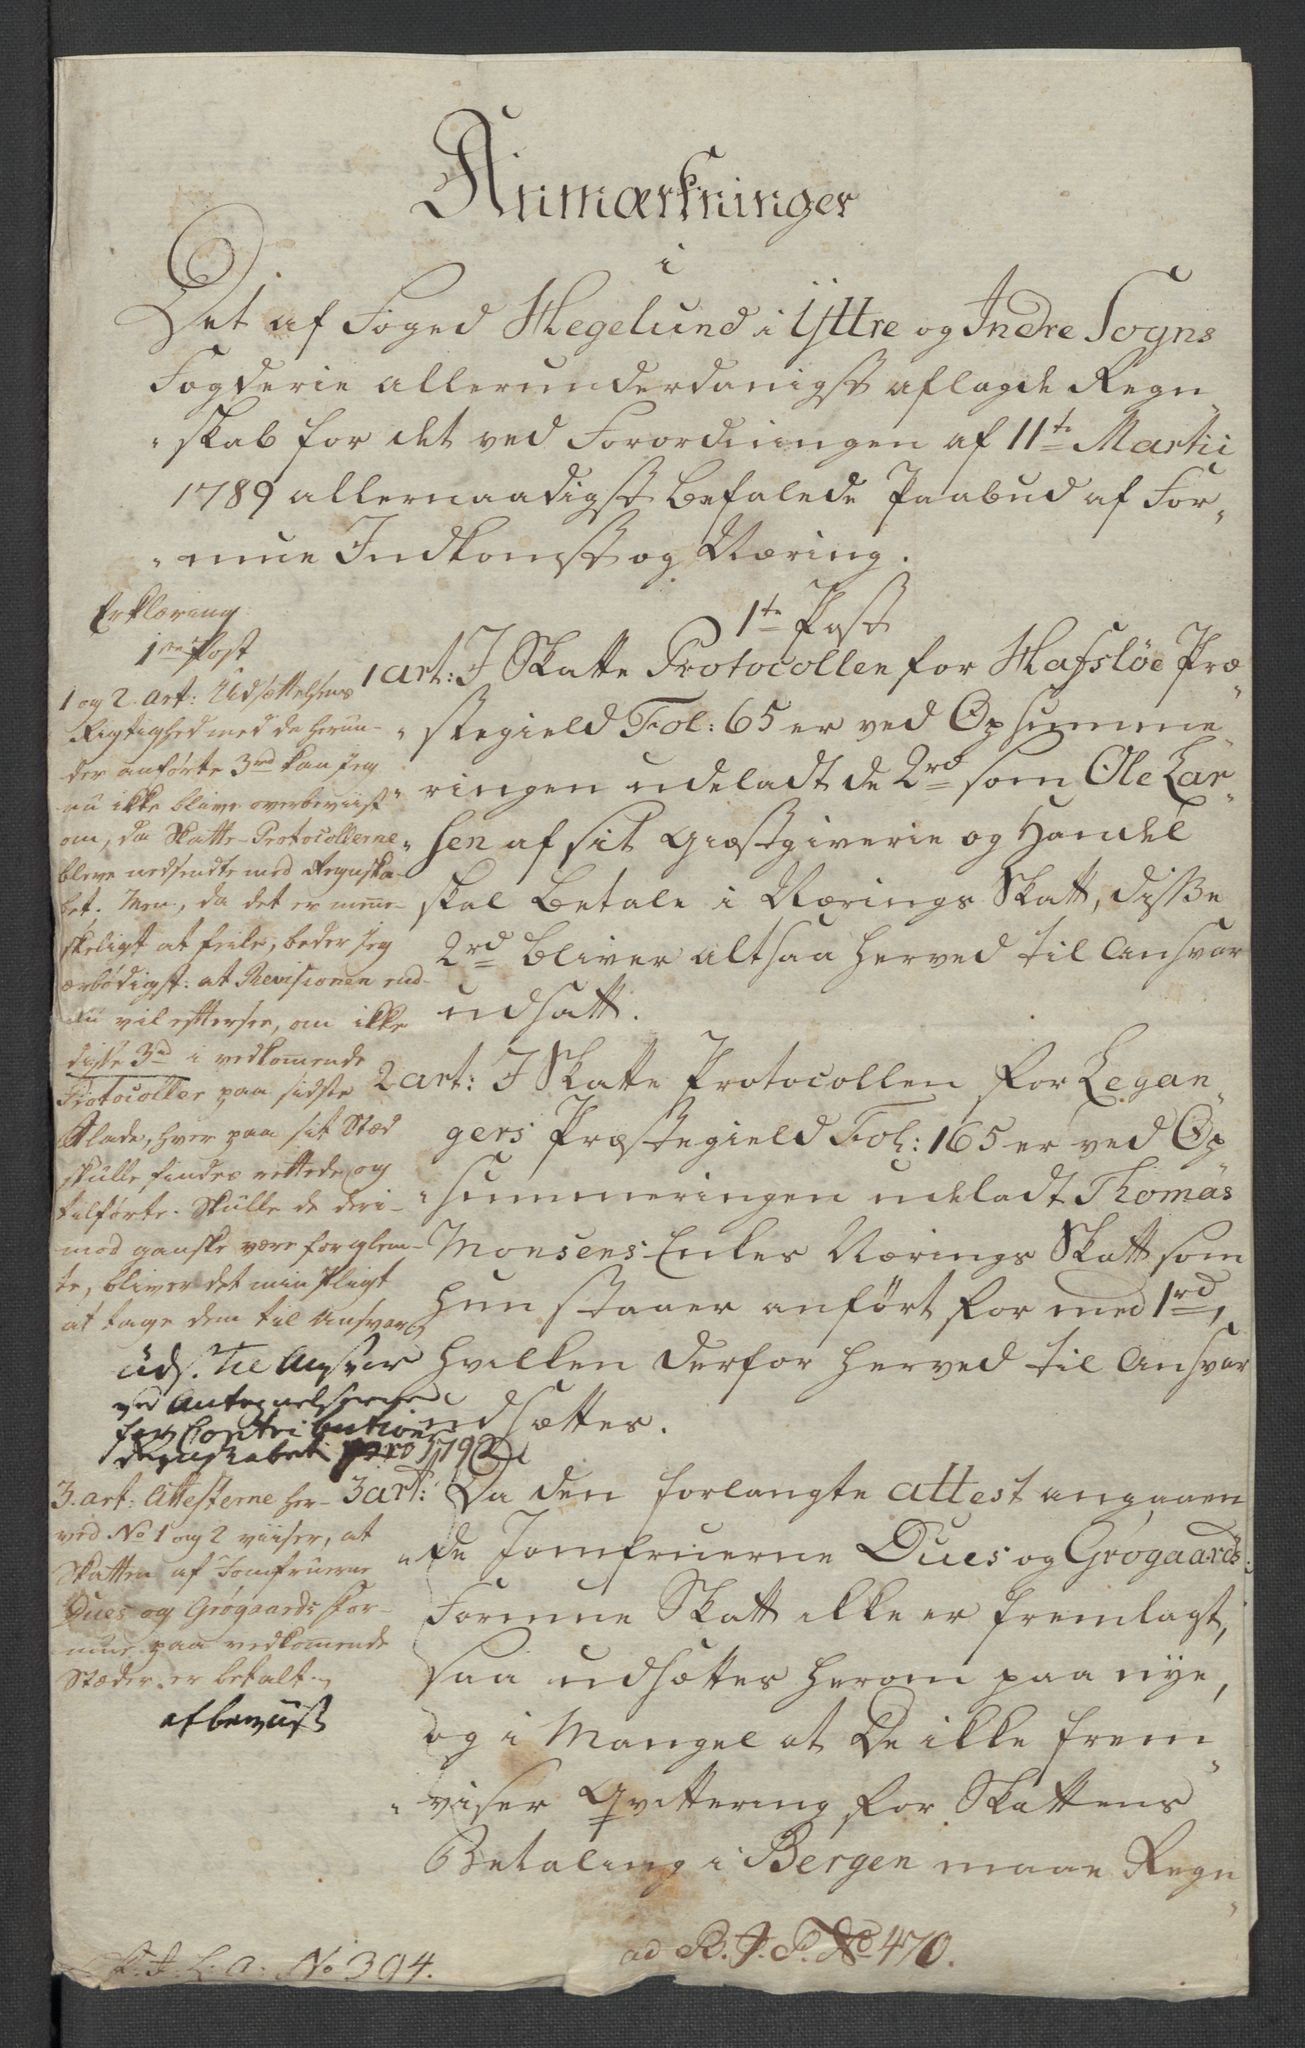 Anmærkninger
i
Det af Foged Hegelund i Yttre og Indre Sogns
Fogderie allerunderdanigst aflagde Regn„
„skab for det ved Forordningen af 11te Martii
1789 allernaadigst befalede Paabud af For„
„mue Indkomst og Næring.
1te Post
1 art: I Skatte Protocollen for Hafsløe Præ„
„stegield Fol: 65 er ved Opsumme„
„ringen udeladt de 2rd som Ole Lar„
„sen af sit Giæstgiverie og Handel
skal betale i Nærings Skatt, disse
2rd bliver altsaa herved til Ansvar
udsatt.
2 art: I Skatte Protocollen for Legan„
gers Præstegield Fol: 165 er ved Op
„summeringen udeladt Thomas
Monsens Enkes Nærings Skatt som
hun staaer anført for med 1rd,
hvilken derfor herved til Ansvar
udsættes.
3 art: Da den forlangte attest angaaen
„de Jomfruerne Dues og Grøgaards
Formue Skatt ikke er fremlagt,
saa udsættes herom paa nye,
og i Mangel at De ikke frem„
„viser Qvittering for Skattens
Betaling i Bergen maae Regn„
Erklæring
1ste Post
1 og 2. art: Udsættelsens
Rigtighed med de herun-
der anførte 3rd kan jeg
nu ikke blive overbeviist
om, da Skatte-Protocollerne
bleve nedsendte med Regnska-
bet. Men, da det er menne-
skeligt at feile, beder jeg
ærbødigst: at Revisionen end-
nu vil eftersee, om ikke
disse 3rd i vedkommende
Protocoller paa sidste
Blade, hver paa sit Stæd
skulle findes rettede og
tilførte. Skulle de deri-
mod ganske være forglem-
te, bliver det min Pligt
at tage dem til Ansvar
Uds. til Ansvar
ved Antegnelserne
for Contributions
Regnskabet pro 1792
3. art: Attesterne her-
ved No 1 og 2 viiser, at
Skatten af Jomfruerne
Dues og Grøgaards For-
mue paa vedkommende
Stæder er betalt.
afbeviist
ad R. J. P. No 470.
L. A: No 394.